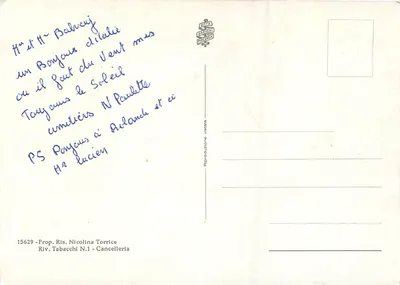 Mme et Mr
un Bonjour d'Italie
ou il fait du Vent mais
Toujours le Soleil
amitiés N Paulette
PS Bonjour à Rolande et à
Mr Lucien
15629 - Prop. Ris. Nicolina Torrice
Riv. Tabacchi N.1 - Cancelleria